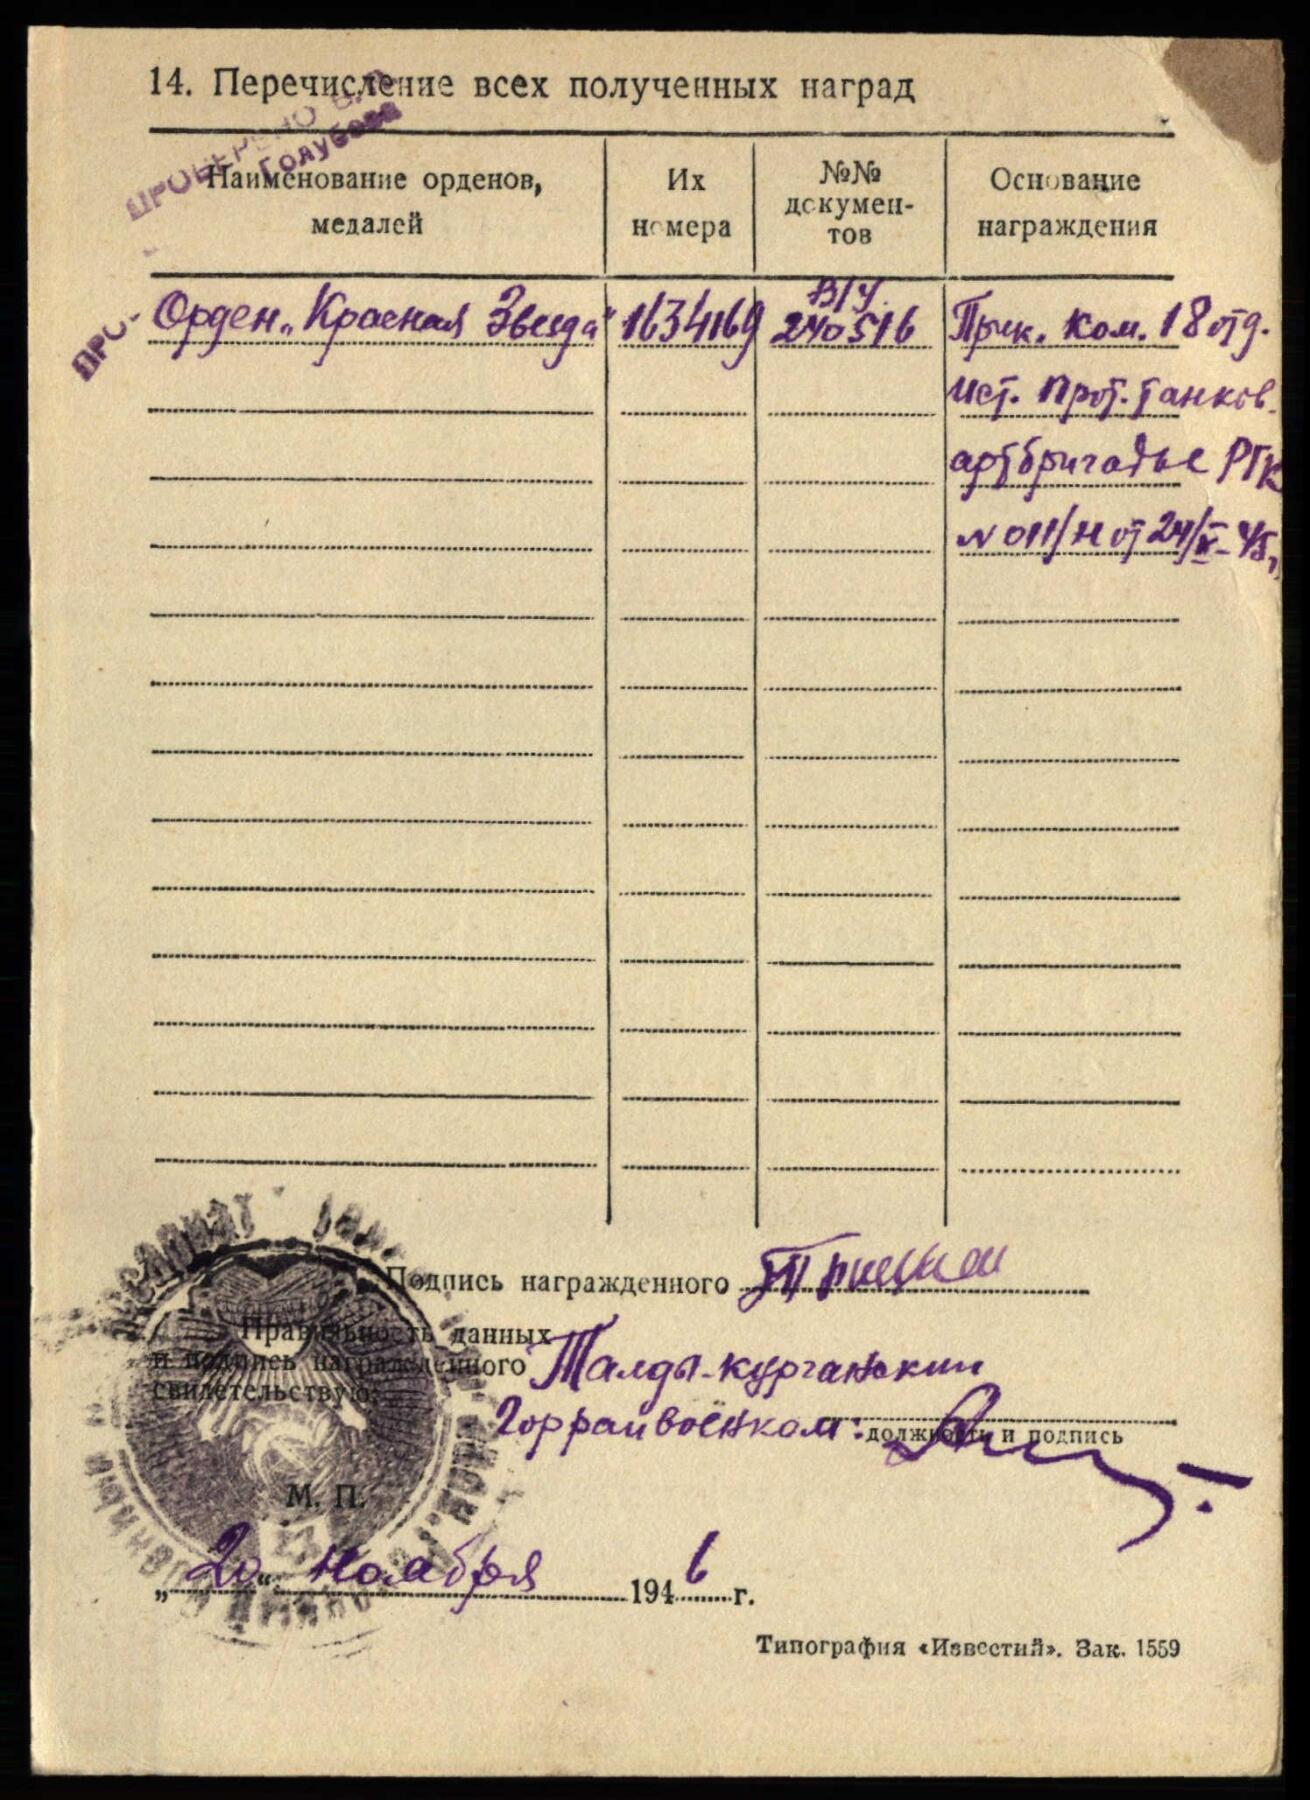 14. Перечисление всех полученных наград
ПРОВЕРЕНО
Голубева
Наименование орденов, медалей
Их номера
№№ докумен-
тов
Основание награждения
Орден „Красная Звезда“ 1634169 В/У. 240516 Прик. Ком. 18 отд.
Ист. Прот. танков.
артбригадье РГК
N 011/н от 24/ 45,
Подпись награжденного
Правильность данных
и подпись награжденного
свидетельствую:
Талды-курганский
Горрайвоенком:
должность и подпись
М. П.
„20“ ноября 1946 г.
Типография «Известий». Зак. 1559